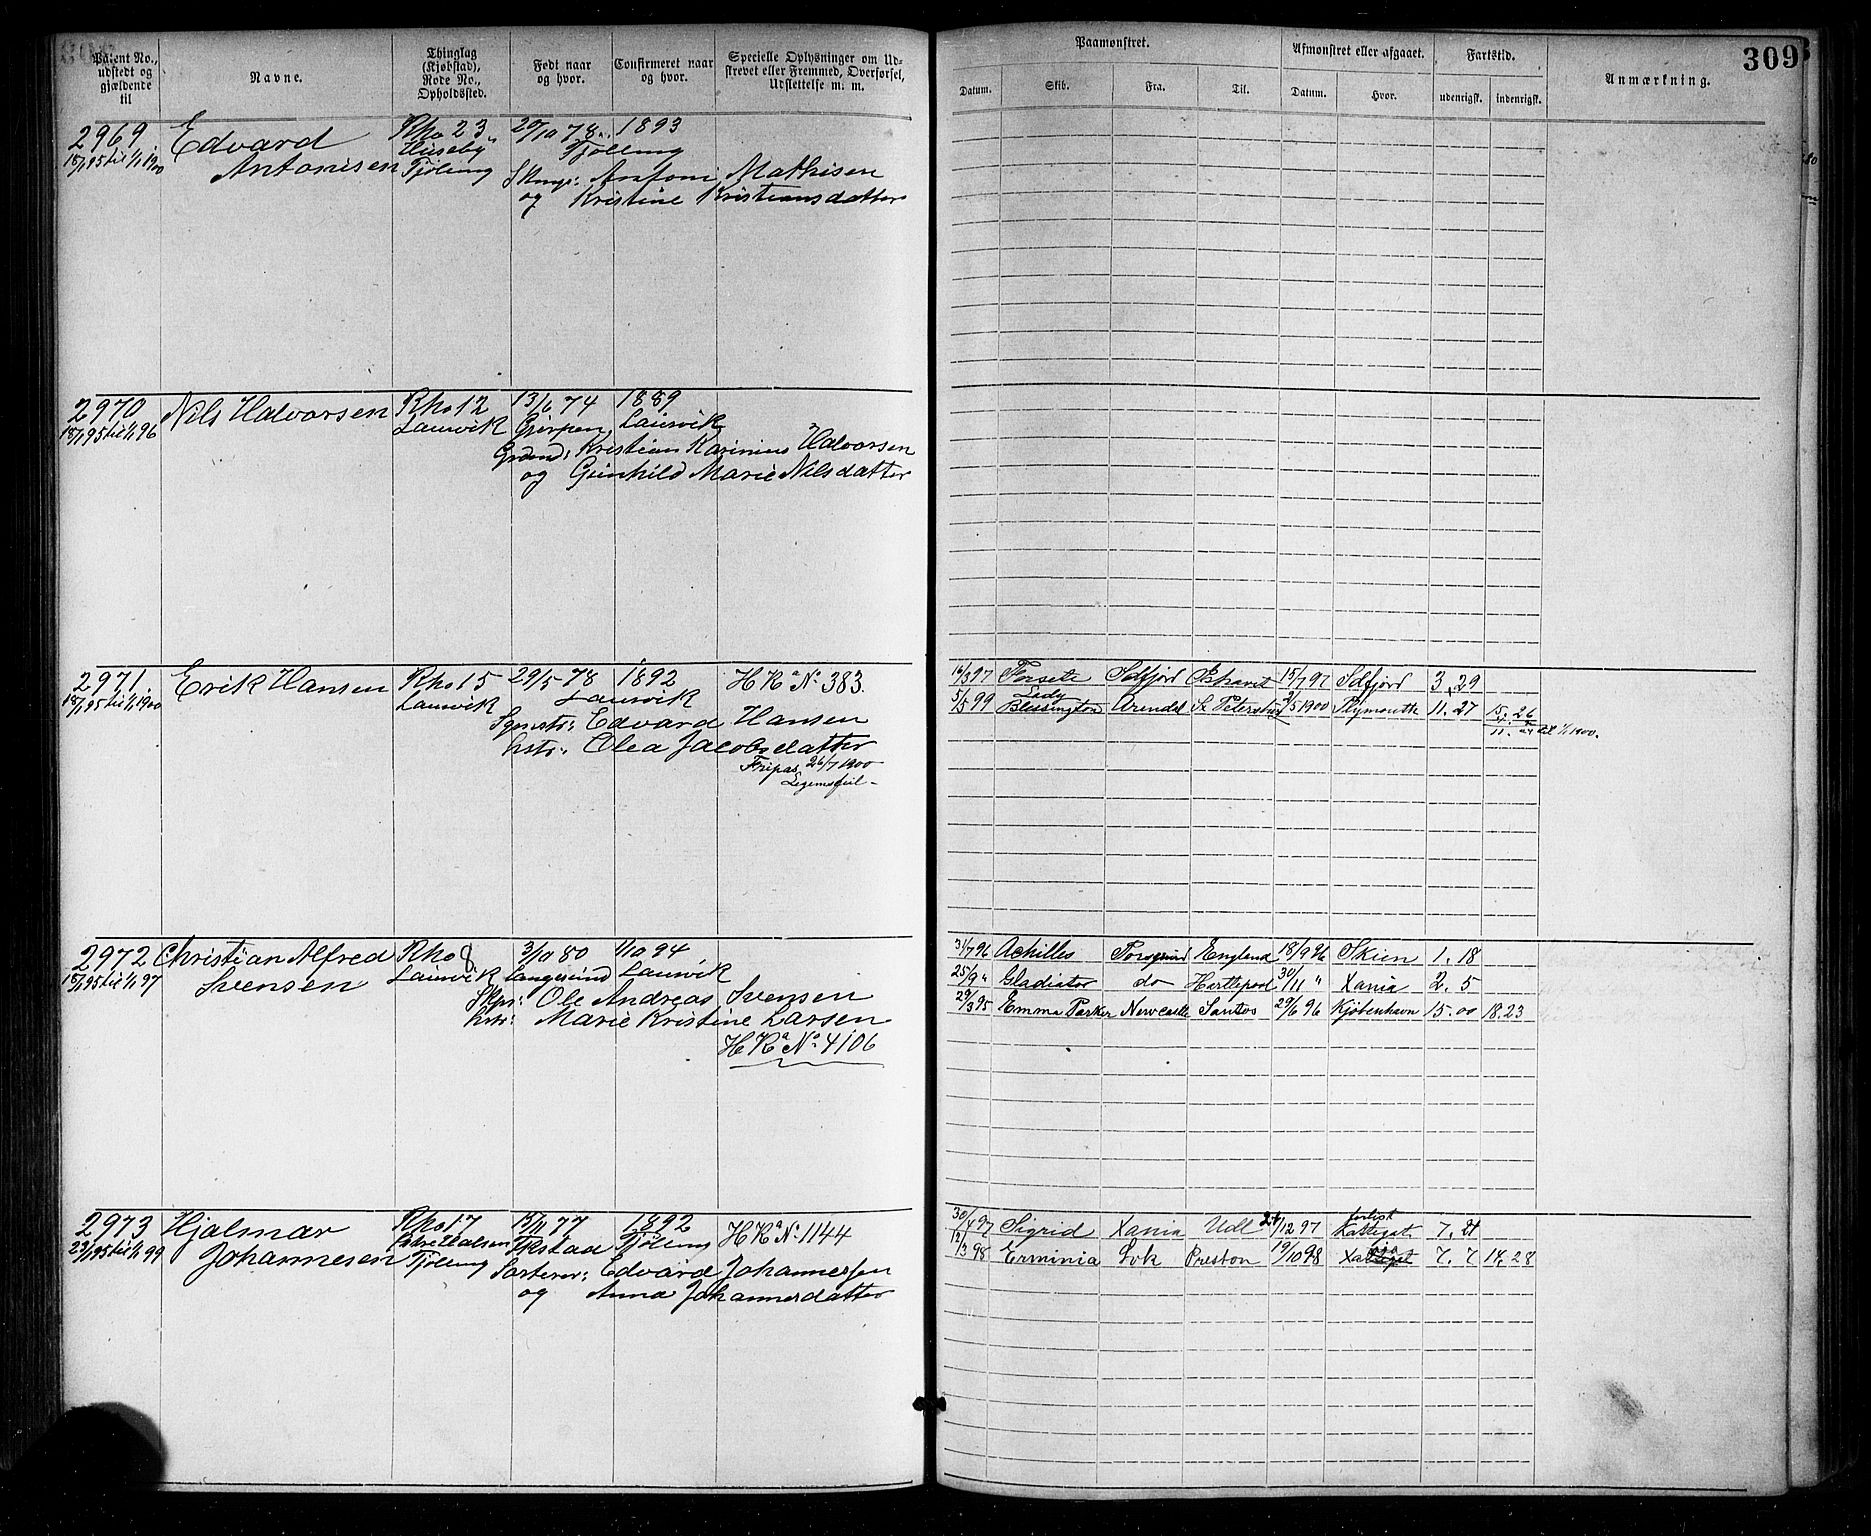 309
Patent No., udstedt og gjældende til
Navne.
Thinglag (Kjøbstad), Rode No., Opholdssted.
Født naar og hvor.
Confirmeret naar og hvor.
Specielle Oplysninger om Udskrevet eller Fremmed, Overførsel, Udslettelse m. m.
Paamønstret.
Afmønstret eller afgaaet.
Fartstid.
Anmærkning.
Datum. Skib. Fra. Til. Datum. Hvor. udenrigsk. indenrigsk.
2969 Edvard Rho 23 29/10 78 1893
18/1 95 til 1/1 1900 Antonisen Huseby Tjølling
Tjølling
Antoni Mathisen
og Kristine Kristiansdatter
2970 Nils Halvorsen Rho 12 13/6 74 1889
18/1 95 til 1/1 96 Laurvik Gjerpen Laurvik
Kristian Karinius Halvorsen
og Gunhild Marie Nilsdatter
2971 Erik Hansen Rho 15 29/5 78 1892 H Ra No 383.
18/1 95 til 1/1 1900 Laurvik Laurvik
Edvard Hansen
hstr: Olea Jacobsdatter
Fripas 26/7 1900
Legemsfeil
16/3 97 15/7 97 3. 29
5/5 99 Lady Blessington Arendal St Petersburg 3/5 1900 Plymouth 11. 27 15. 26
til 1/1 1900.
2972 Christian Alfred Rho 8 3/10 80 1/10 94
18/1 95 til 1/1 97 Svensen Laurvik Langesund Laurvik
Ole Andreas Svensen
hstr: Marie Kristine Larsen
H Ra No 4106
31/7 96 Achilles Porsgrund England 18/9 96 Skien 1. 18
25/9 " Gladiator do Hartlepool 30/11 " Xania 2. 5
29/3 95 Emma Parker Newcastle Santos 29/6 96 Kjøbenhavn 15. 00 18. 23
2973 Hjalmar Rho 17 15/11 77 1892 H Ra No 1144
23/1 95 til 1/1 99 Johannesen Tjølling Tjølling
Edvard Johannessen
og Anna Johannesdatter
30/4 97 Sigrid Xania Udl 24/12 97 forlist Kattegat 7. 24
12/3 98 Erminia Lvk Preston 19/10 98 Xania 7. 7 14. 28